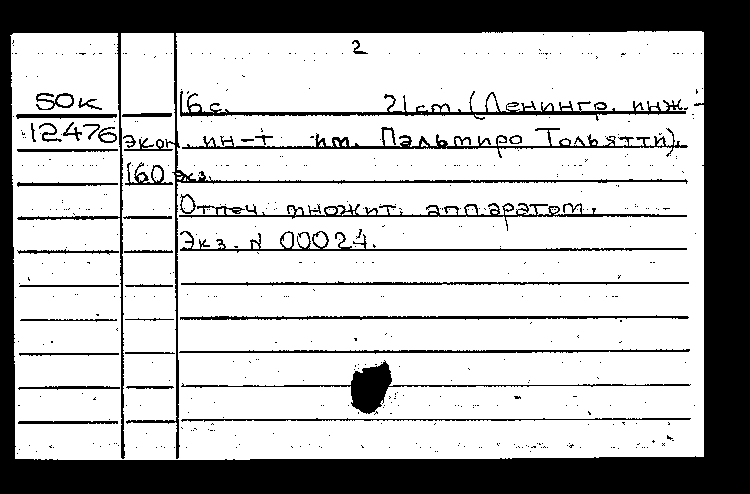 2
50к 16 с. 21 cm. (Ленингр. инж.-
12476 экон. ин-т им. Пальмиро Тольятти).
160 экз.
Отпеч. множит. аппаратом.
Экз. N 00024.